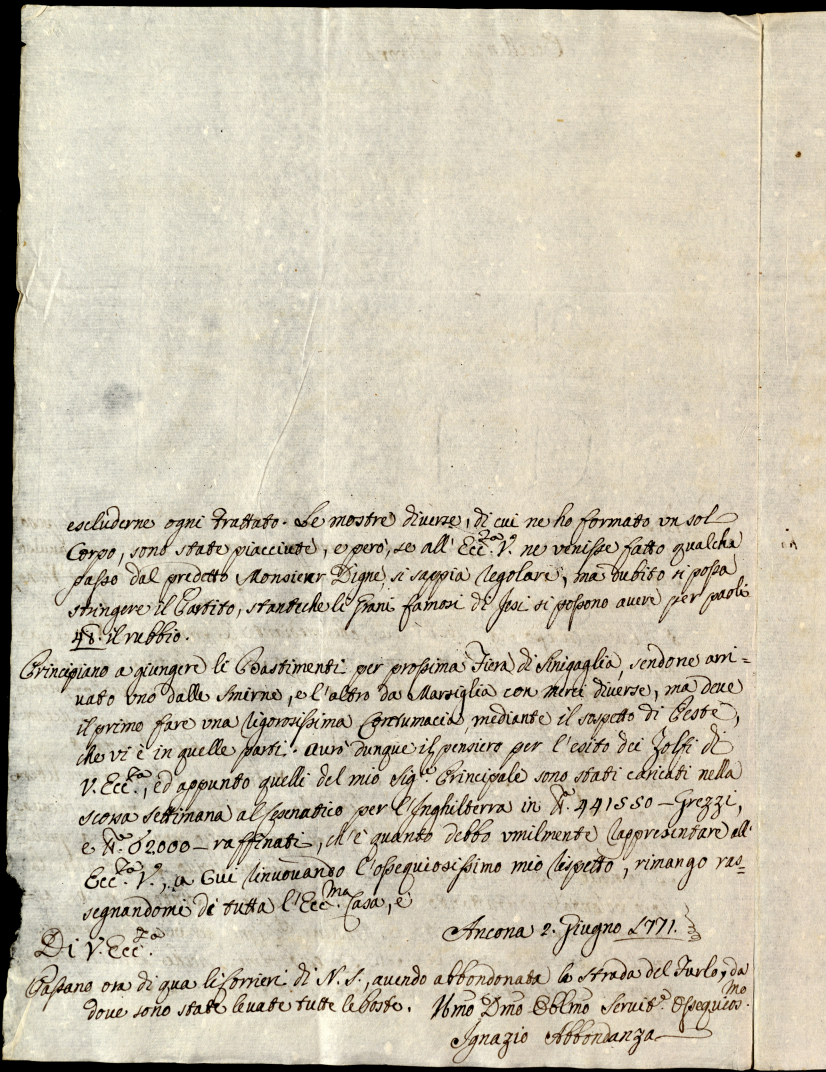 escluderne ogni trattato. Le mostre diverse, di cui ne ho formato un sol
Corpo, sono state piacciute, e però, se all' Ecc.za V.a ne venisse fatto qualche
passo dal predetto Monsieur Digne, si sappia regolare, ma dubito si possa
stringere il Partito, stanteche li Grani famosi di Jesi si possono avere per paoli
48. il rubbio.
Principiano a giungere li Bastimenti per prossima Fiera di Sinigaglia, sendone arri=
vato uno dalle Smirne, e l'altro da Marsiglia con merci diverse, ma deve
il primo fare una rigorosissima Contumacia, mediante il sospetto di Peste,
che vi è in quelle parti. Avrò dunque il pensiero per l'esito dei Zolfi di
V. Ecc.za, ed appunto quelli del mio Sig.e Principale sono stati caricati nella
scorsa settimana al Cesenatico per l'Inghilterra in 441550 - Grezzi,
e 62000 - raffinati, ch'è quanto debbo umilmente rappresentare all'
Ecc.za V.a, a Cui rinuovando l'ossequiosissimo mio rispetto, rimango ras=
segnandomi di tutta l'Ecc.ma Casa, e
Ancona 2. Giugno 1771.
Di V. Ecc.za
Passano ora di qua li Corrieri di N. S., avendo abbondonata la strada del Furlo, da
dove sono state levate tutte le Poste. Umo Dmo Obblmo Servit.e Ossequios.mo
Ignazio Abbondanza